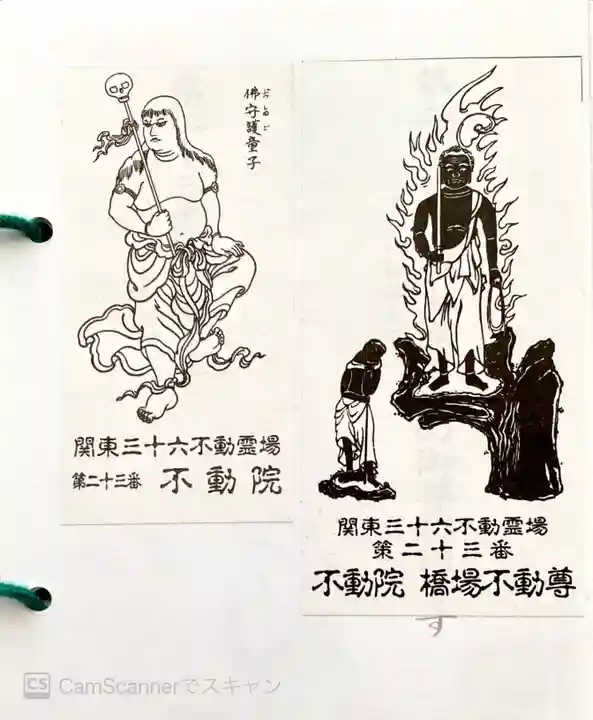 佛守護童子
関東三十六不動霊場
第二十三番 不動院
関東三十六不動霊場
第二十三番
不動院 橋場不動尊
す
CS CamScannerでスキャン